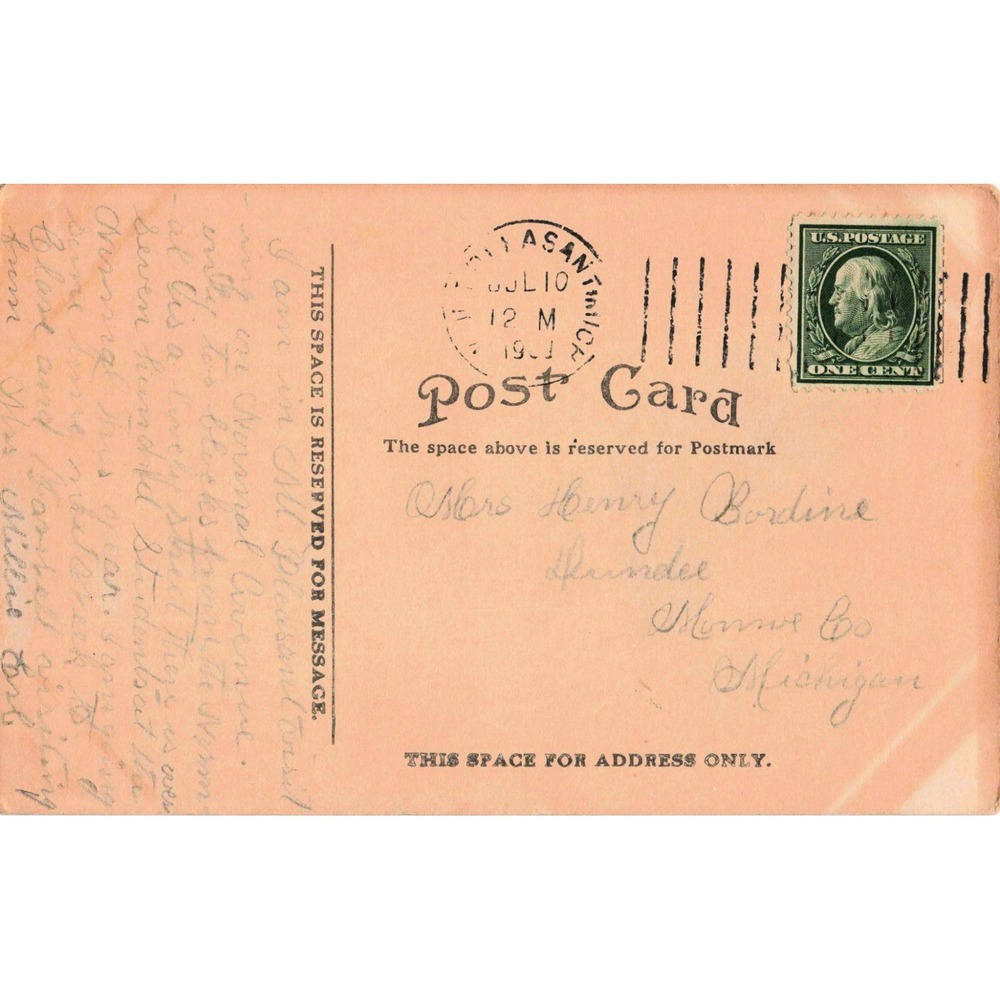 U.S.POSTAGE
ONE CENT
JUL 10
12 M
MICH
Post Card
The space above is reserved for Postmark
THIS SPACE IS RESERVED FOR MESSAGE.
Mrs Henry Bordine
Dundee
Monroe Co
Michigan
THIS SPACE FOR ADDRESS ONLY.
I am in Mt Pleasant
Normal Avenue
only to blocks from the Norm
al its a lovely street there is over
seven hundred students at the
Normal this year.
some next week to
Close and visiting
from Mrs Millie